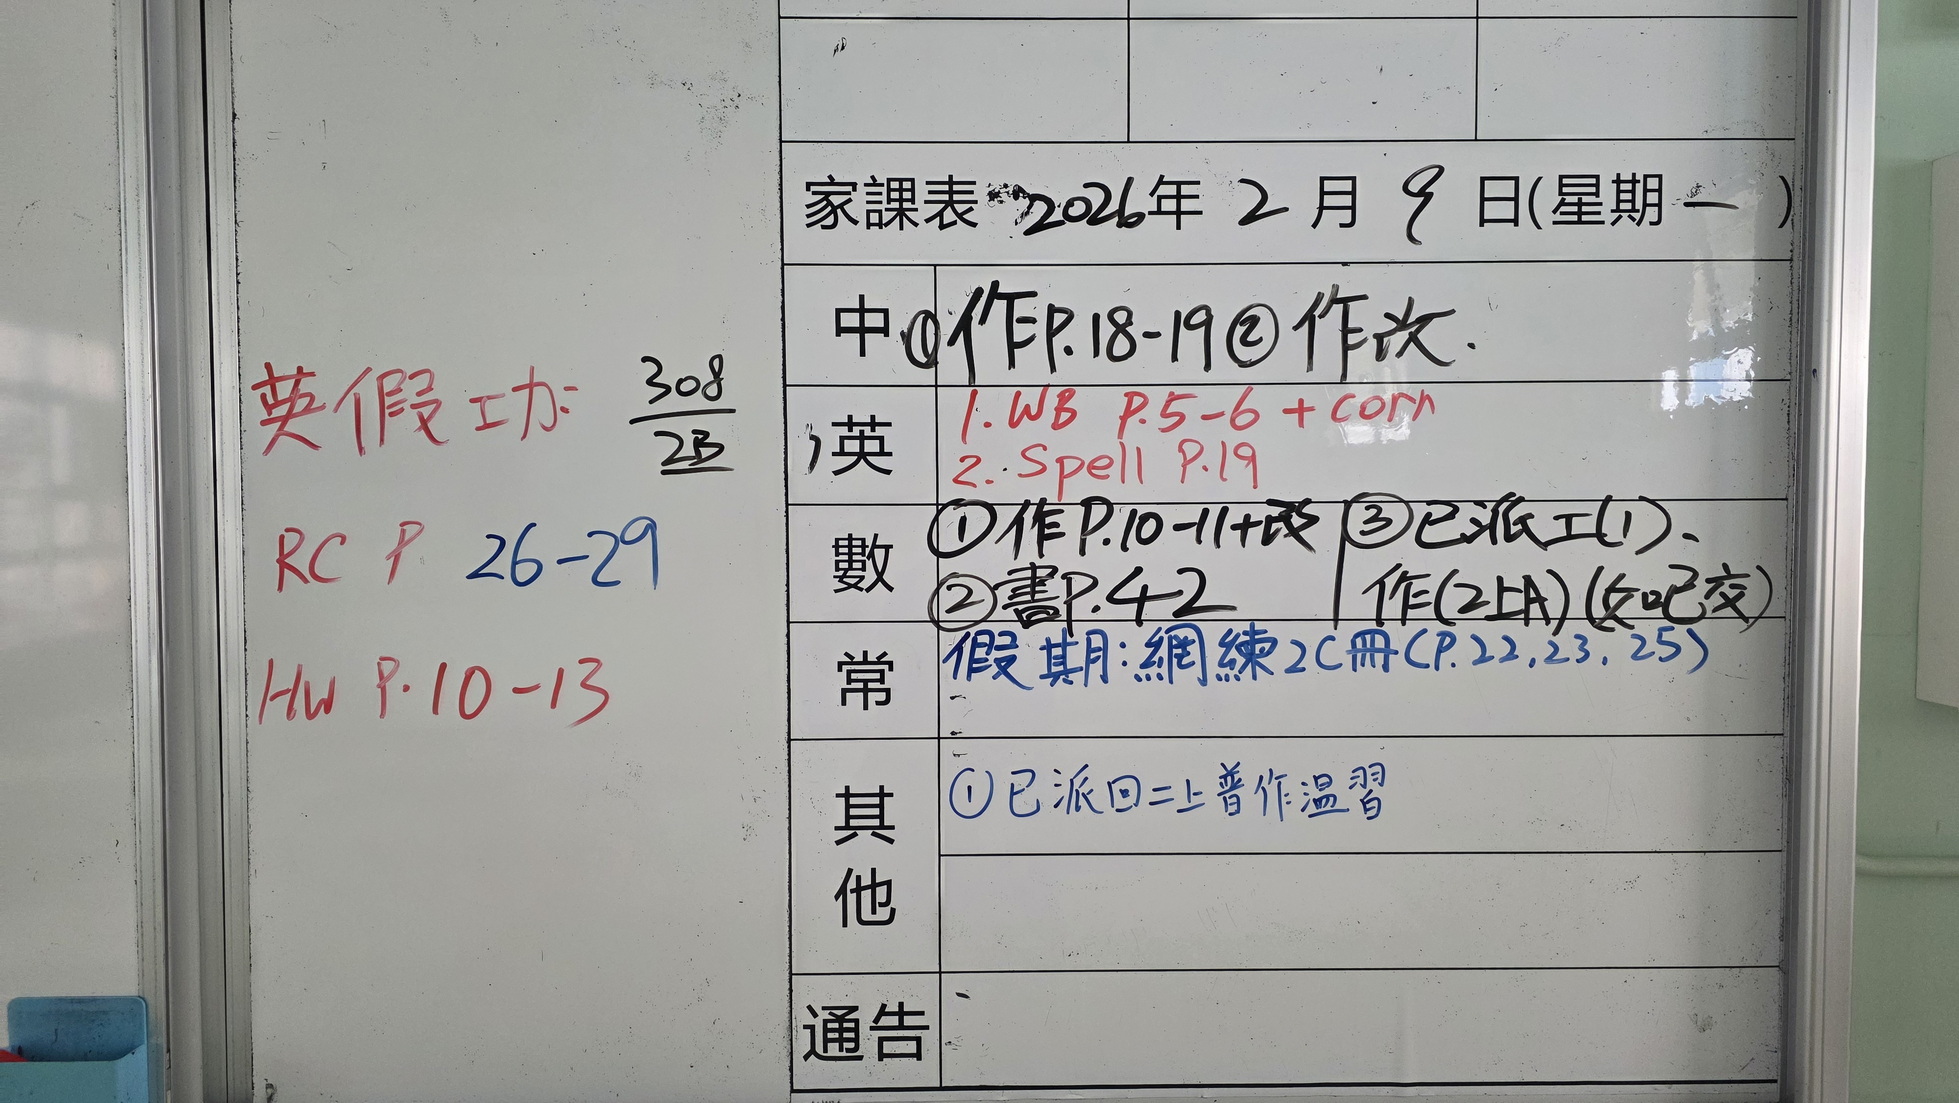 英假功: 308
2B
RC P 26-29
HW P.10-13
家課表 2026年 2 月 9 日(星期一)
中 ①作P.18-19②作改.
英 1. WB P.5-6 + corn
2. Spell P.19
數 ①作P.10-11+改 ③已派工(1)、
②書P.42 作(2上A)(如已交)
常 假期:網練2C冊(P.22,23,25)
其他 ①已派回二上普作溫習
通告